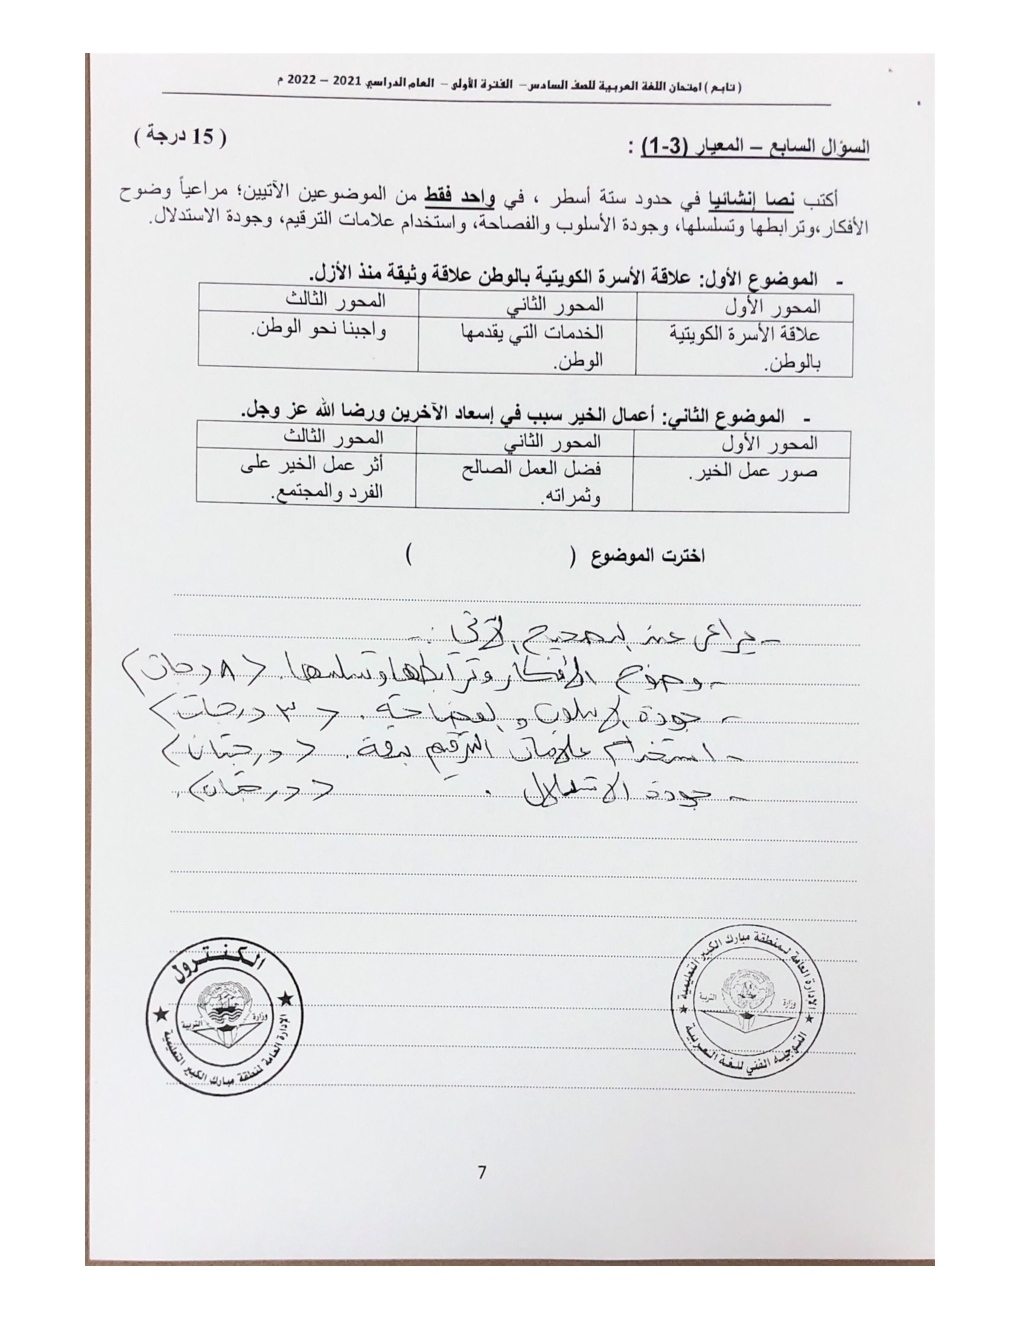 ( تابع ) امتحان اللغة العربية للصف السادس – الفترة الأولى – العام الدراسي 2021 – 2022 م
السؤال السابع – المعيار (3-1) :
( 15 درجة )
أكتب نصا إنشائيا في حدود ستة أسطر ، في واحد فقط من الموضوعين الآتيين؛ مراعياً وضوح
الأفكار،وترابطها وتسلسلها، وجودة الأسلوب والفصاحة، واستخدام علامات الترقيم، وجودة الاستدلال.
- الموضوع الأول: علاقة الأسرة الكويتية بالوطن علاقة وثيقة منذ الأزل.
المحور الأول المحور الثاني المحور الثالث
علاقة الأسرة الكويتية الخدمات التي يقدمها واجبنا نحو الوطن.
بالوطن. الوطن.
- الموضوع الثاني: أعمال الخير سبب في إسعاد الآخرين ورضا الله عز وجل.
المحور الأول المحور الثاني المحور الثالث
صور عمل الخير. فضل العمل الصالح أثر عمل الخير على
وثمراته. الفرد والمجتمع.
اخترت الموضوع ( )
- يراعى عند التصحيح الآتي :-
- وضوح الأفكار وترابطها وتسلسلها. (٨ درجات)
- جودة الأسلوب والفصاحة. (٣ درجات)
- استخدام علامات الترقيم بدقة. (درجتان)
- جودة الاستدلال. (درجتان).
الكنترول
وزارة التربية
الإدارة العامة لمنطقة مبارك الكبير التعليمية
الإدارة العامة لمنطقة مبارك الكبير التعليمية
وزارة التربية
التوجيه الفني للغة العربية
7